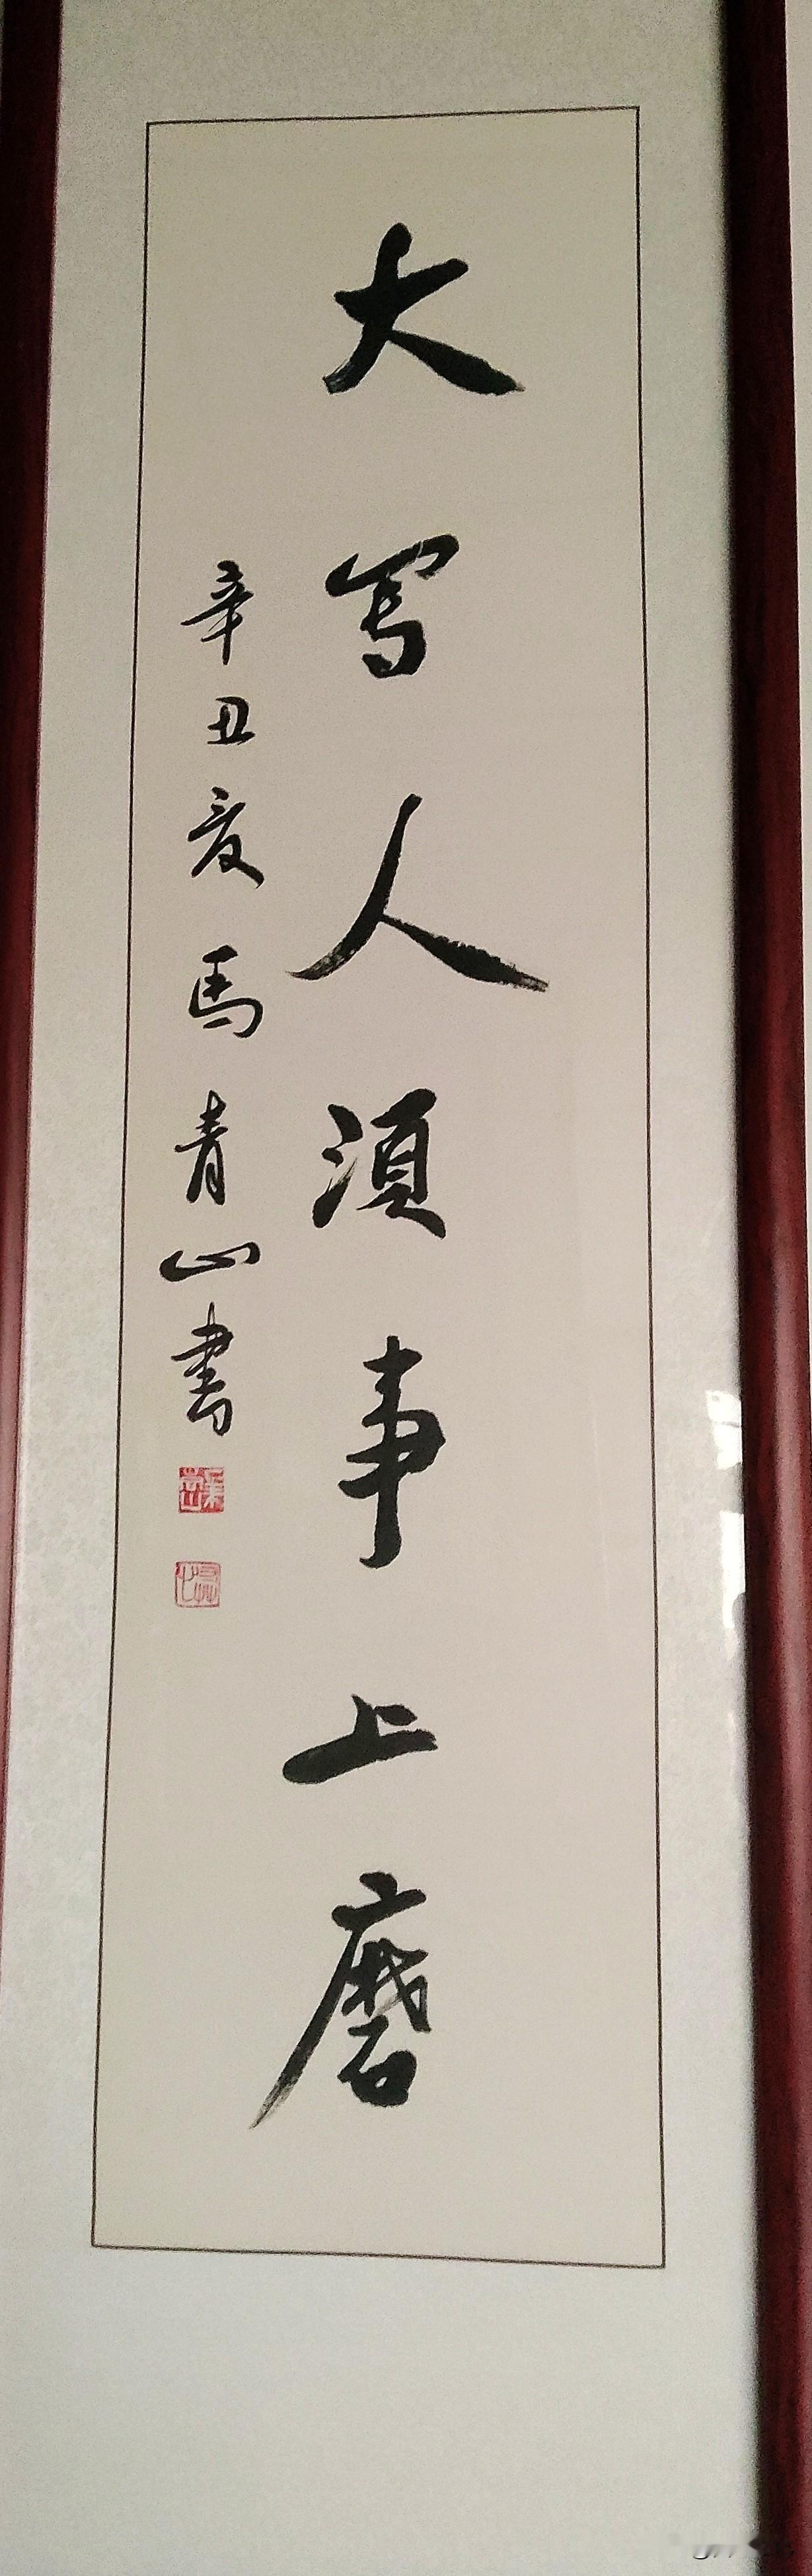 大写人須事上磨
辛丑夏馬青山書